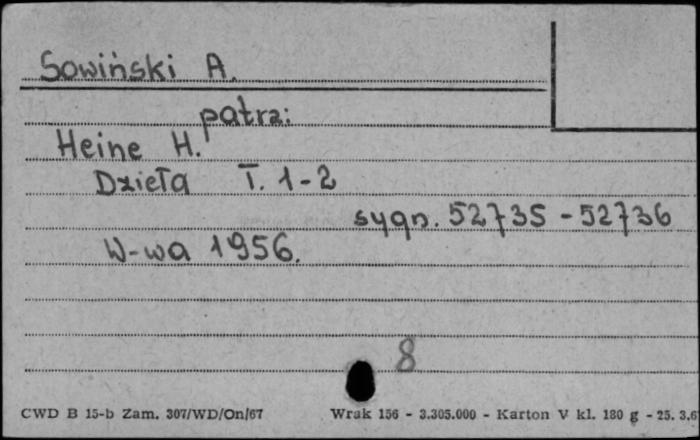 Sowiński A.
patrz:
Heine H.
Dzieła T. 1-2
sygn. 52735 - 52736
W-wa 1956.
8
CWD B 15-b Zam. 307/WD/On/67 Wrak 156 - 3.305.000 - Karton V kl. 180 g - 25. 3.6